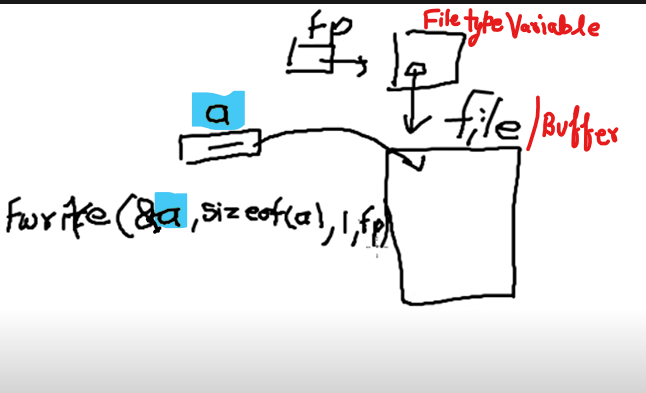 fp
File type Variable
a
file/Buffer
Fwrite(&a,sizeof(a),1,fp)